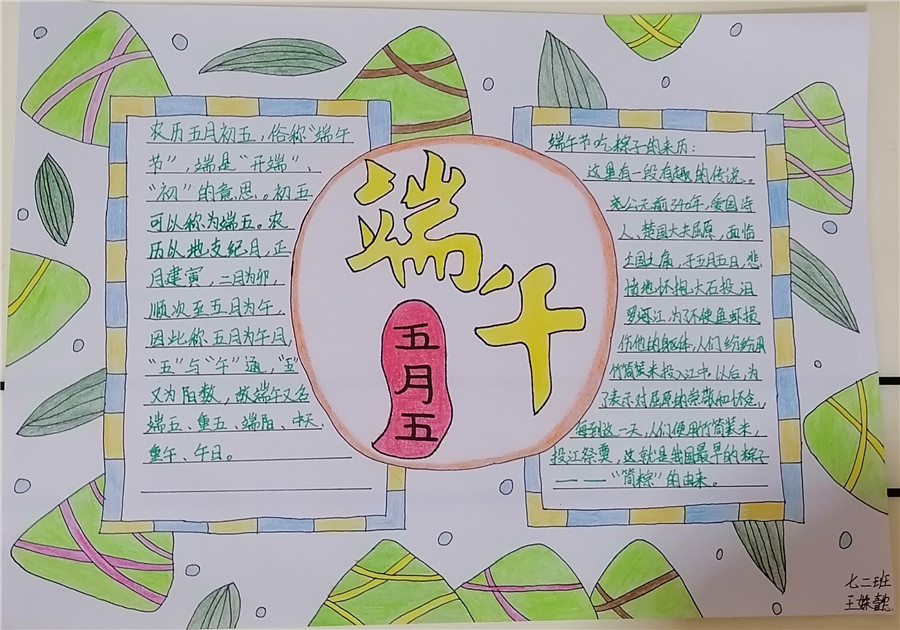 农历五月初五，俗称“端午
节”，端是“开端”、
“初”的意思。初五
可以称为端五。农
历以地支纪月，正
月建寅，二月为卯，
顺次至五月为午，
因此称五月为午月，
“五”与“午”通，“五”
又为阳数，故端午又名
端五、重五、端阳、中天、
重午、午日。
端午
五月五
端午节吃粽子的来历：
这里有一段有趣的传说。
老公元前340年，爱国诗
人、楚国大夫屈原，面临
亡国之痛，于五月五日，悲
愤地怀抱大石投汨
罗江，为了不使鱼虾损
伤他的躯体，人们纷纷用
竹筒装米投入江中。以后，为
了表示对屈原的崇敬和怀念，
每到这一天，人们便用竹筒装米，
投江祭奠，这就是我国最早的粽子
——“筒粽”的由来。
七二班
王姝